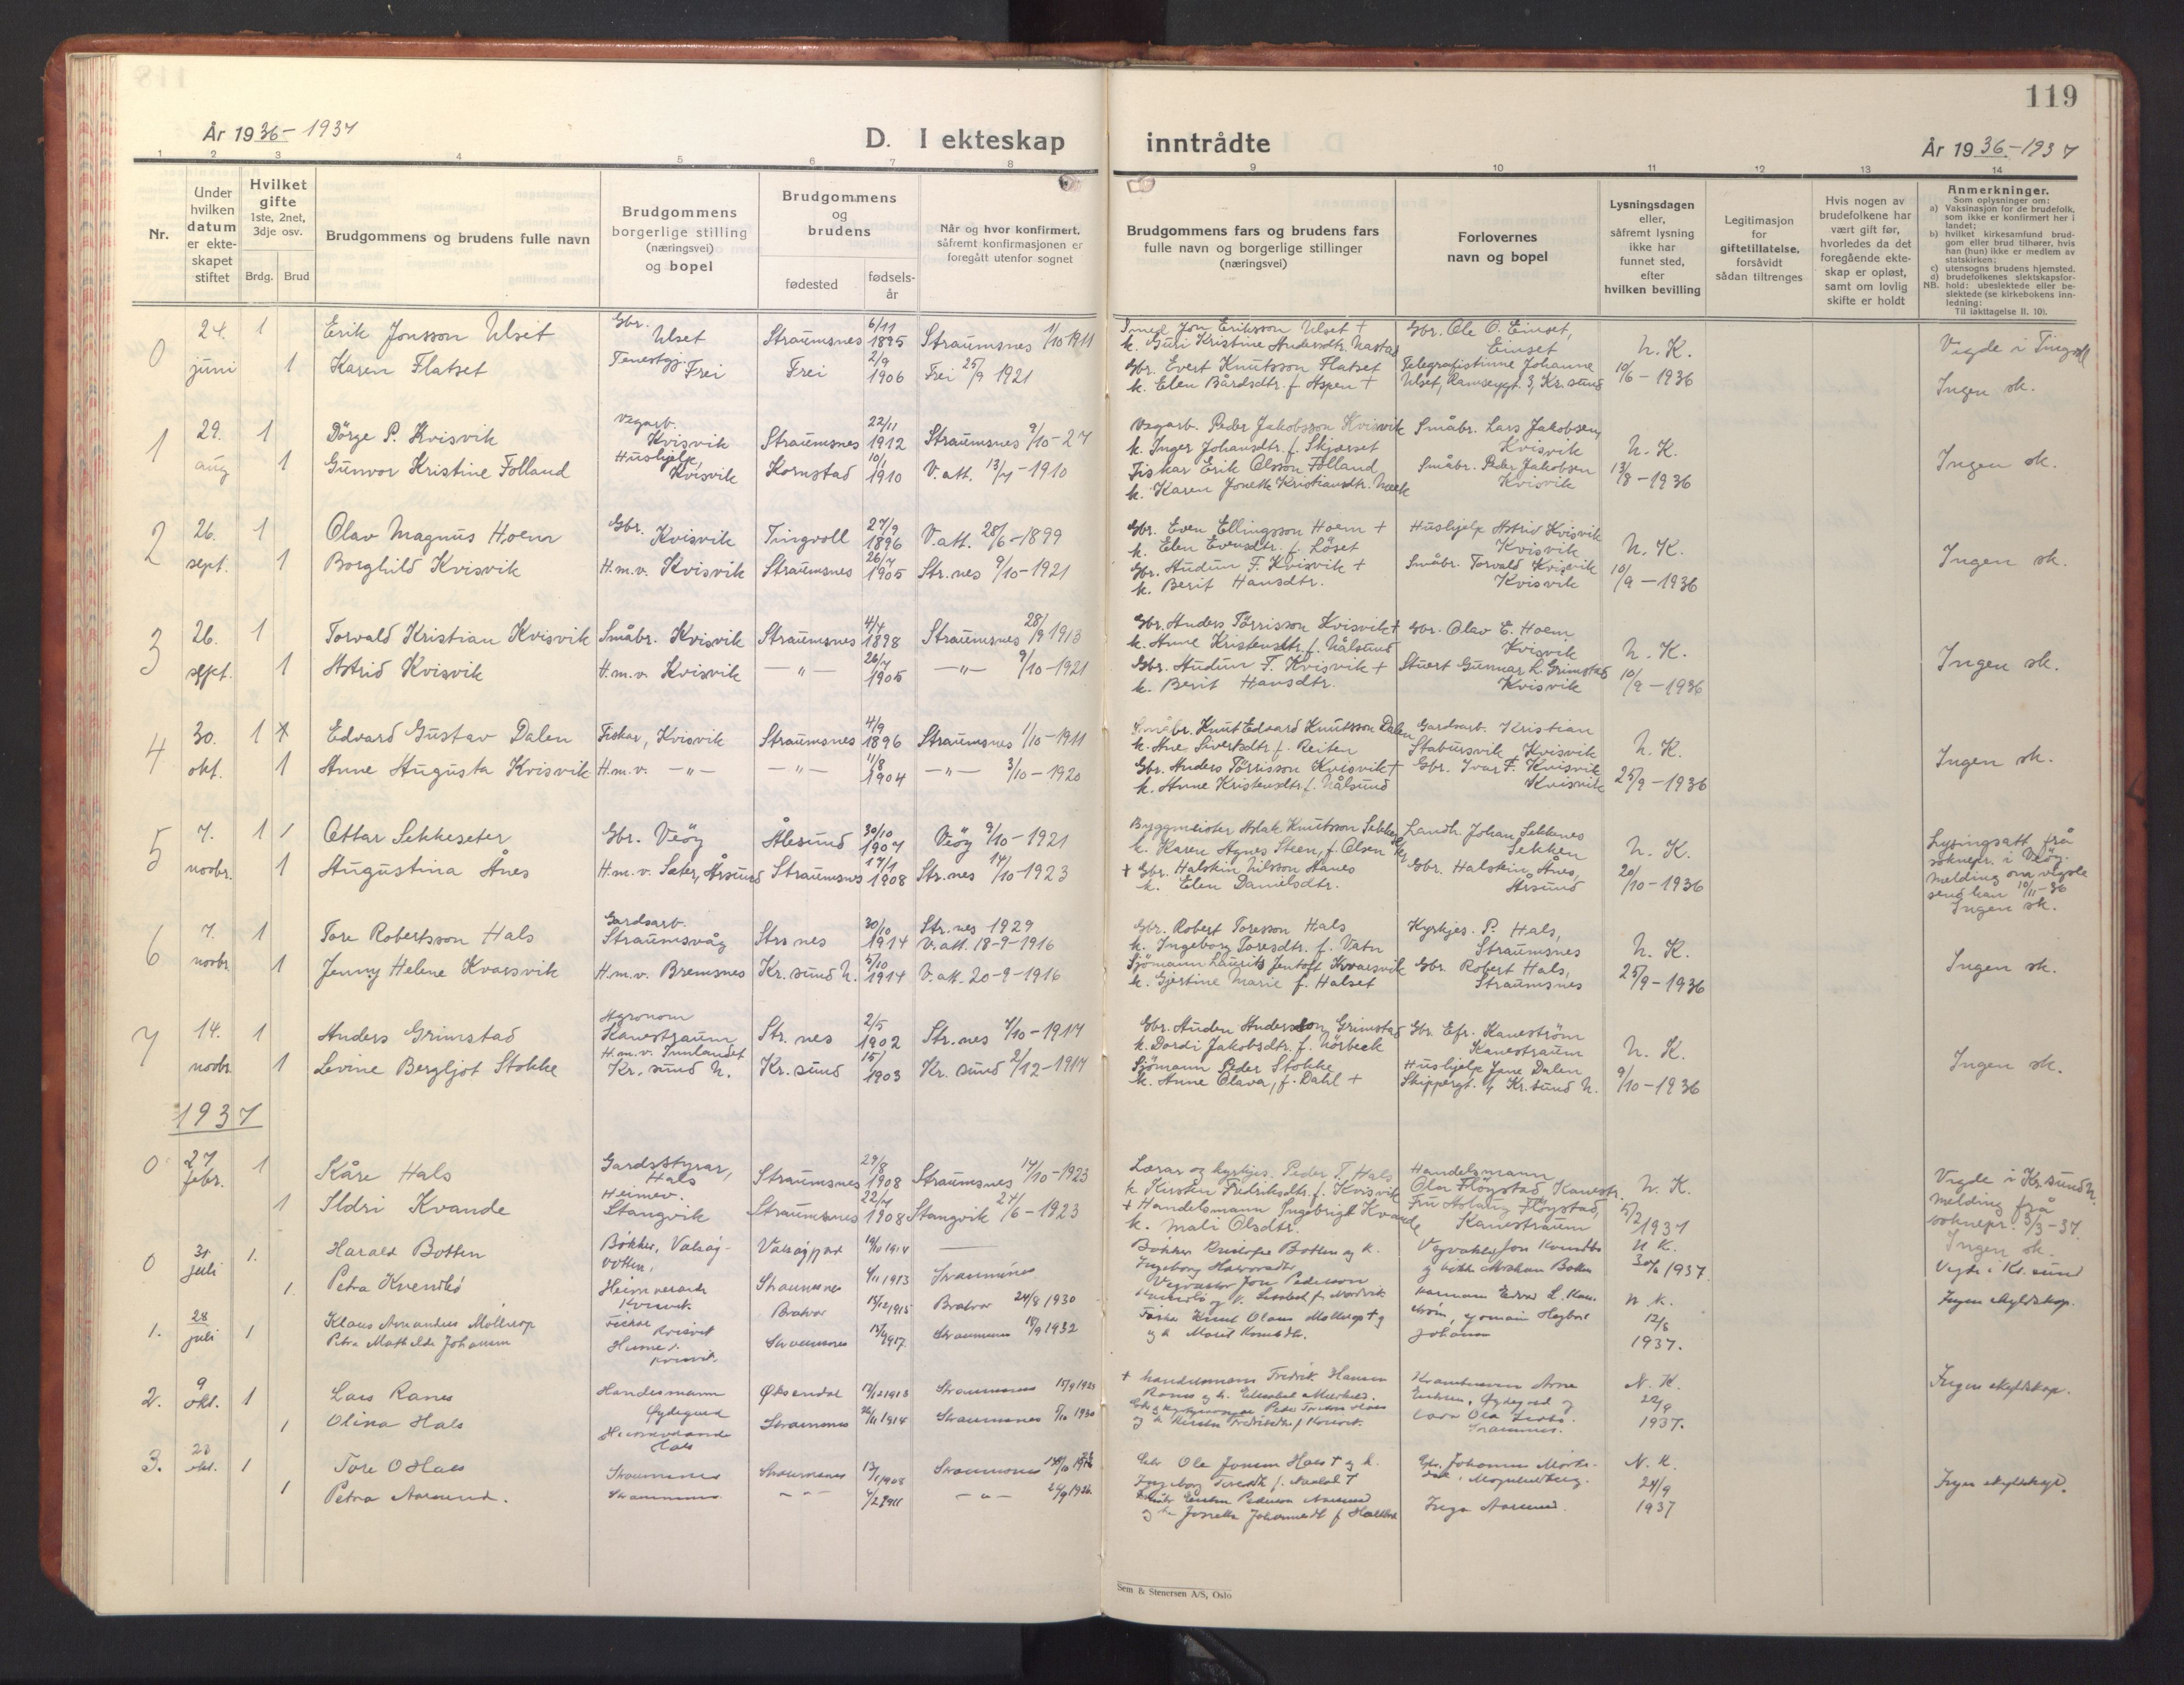 119
År 1936-1937
D. I ekteskap inntrådte
År 1936-1937
1 2 3 4 5 6 7 8 9 10 11 12 13 14
Nr.
Under hvilken datum er ekteskapet stiftet
Hvilket gifte
1ste, 2net, 3dje osv.
Brdg. Brud
Brudgommens og brudens fulle navn
Brudgommens borgerlige stilling (næringsvei) og bopel
Brudgommens og brudens
fødested
fødselsår
Når og hvor konfirmert, såfremt konfirmasjonen er foregått utenfor sognet
Brudgommens fars og brudens fars fulle navn og borgerlige stillinger (næringsvei)
Forlovernes navn og bopel
Lysningsdagen eller, såfremt lysning ikke har funnet sted, efter hvilken bevilling
Legitimasjon for giftetillatelse, forsåvidt sådan tiltrenges
Hvis nogen av brudefolkene har vært gift før, hvorledes da det foregående ekteskap er opløst, samt om lovlig skifte er holdt
Anmerkninger.
Som oplysninger om:
a) Vaksinasjon for de brudefolk, som ikke er konfirmert her i landet;
b) hvilket kirkesamfund brudgom eller brud tilhører, hvis han (hun) ikke er medlem av statskirken;
c) utensogns brudens hjemsted.
d) brudefolkenes slektskapsforhold: ubeslektede eller beslektede (se kirkebokens innledning:
NB.
Til iakttagelse II. 10).
0 24. juni 1 Erik Jonsson Ulset Gbr. Ulset Straumsnes 6/11 1895 Straumsnes 1/10-1911
Smed Jon Eriksson Ulset +
k. Guri Kristine Andersdtr. Nastad
Gbr. Ole O. Einset, Einset
N.K. 10/6-1936
Vigde i Tingvoll
1 Karen Flatset Tenestgj. Frei Frei 2/9 1906 Frei 25/9 1921
Gbr. Evert Knutsson Flatset
k. Elen Bårdsdtr. f. Aspen +
Telegrafistinne Johanne Ulset, Ramsøygt. 3, Kr.sund
Ingen sk.
1 29. aug 1 Dørge P. Kvisvik Vegarb. Kvisvik Straumsnes 22/11 1912 Straumsnes 9/10-27
Vegarb. Peder Jakobsson Kvisvik
k. Inger Johansdtr. f. Skjærset
Småbr. Lars Jakobsen, Kvisvik
N.K. 13/8-1936
1 Gunvor Kristine Folland Hushjelp, Kvisvik Kornstad 1910 V.att. 13/7-1910
Fiskar Erik Olsson Folland
k. Karen Jonette Kristiansdtr.
Småbr. Peder Jakobsen Kvisvik
Ingen sk.
2 26. sept. 1 Olav Magnus Hoem Gbr. Kvisvik Tingvoll 27/9 1896 V.att. 28/6-1899
Gbr. Even Ellingsson Hoem +
k. Elen Evensdtr. f. Löset
Hushjelp Astrid Kvisvik Kvisvik
N.K. 10/9-1936
1 Borghild Kvisvik H.m.v. Kvisvik Straumsnes 26/7 1905 Str.nes 9/10-1921
Gbr. Audun F. Kvisvik +
k. Berit Hansdtr.
Småbr. Torvald Kvisvik Kvisvik
Ingen sk.
3 26. sept. 1 Torvald Kristian Kvisvik Småbr. Kvisvik Straumsnes 4/7 1898 Straumsnes 28/9 1913
Gbr. Anders Tørrisson Kvisvik +
k. Anne Kristensdtr. f. Nålsund
Gbr. Olav E. Hoem Kvisvik
N.K. 10/9-1936
1 Astrid Kvisvik H.m.v. Kvisvik -"- 26/7 1905 -"- 9/10-1921
Gbr. Audun F. Kvisvik +
k. Berit Hansdtr.
Stuert Gunnar L. Grimstad Kvisvik
Ingen sk.
4 30. okt. 1 Edvard Gustav Dalen Fiskar, Kvisvik Straumsnes 4/9 1896 Straumsnes 1/10-1911
Småbr. Knut Edvard Knutsson Dalen
k. Ane Sivertsdtr. f. Reiten
Gardsarb. Kristian Stabursvik Kvisvik
N.K. 25/9-1936
1 Anne Augusta Kvisvik H.m.v. -"- -"- 11/8 1904 -"- 3/10-1920
Gbr. Anders Tørrisson Kvisvik +
k. Anne Kristensdtr. f. Nålsund
Gbr. Ivar F. Kvisvik Kvisvik
Ingen sk.
5 7. novbr. 1 Ottar Sekkeseter Gbr. Veøy Ålesund 30/10 1907 Veøy 9/10-1921
Byggmeister Aslak Knutsson
k. Karen Agnes Steen, f. Olsen
Landh. Johan Sekknes Sekken
N.K. 20/10-1936
1 Augustina Ånes H.m.v. Sæter, Årsund Straumsnes 17/1 1908 Str.nes 14/10-1923
+ Gbr. Halstein Nilsson Aanes
k. Elen Danielsdtr.
Gbr. Halstein Ånes, Årsund
Lysingsatt. frå soknepr. i Veøy. Melding om vigsle send han 10/11-36
Ingen sk.
6 7. novbr. 1 Tore Robertsson Hals Gardsarb. Straumsvåg Strs nes 30/10 1914 Str.nes 1929 V.att. 18-9-1916
Gbr. Robert Toresson Hals
k. Ingeborg Toresdtr. f. Vatn
Kyrkjes. P. Hals, Straumsnes
N.K. 25/9-1936
1 Jenny Helene Kvarsvik H.m.v. Bremsnes Kr.sund N. 5/10 1914 V.att. 20-9-1916
Sjömann Laurits Jentoft Kvarsvik
k. Gjertine Marie f. Halset
Gbr. Robert Hals, Straumsnes
Ingen sk.
7 14. novbr 1 Anders Grimstad Agronom Kanestraum Str.nes 2/5 1902 Str.nes 7/10-1917
Gbr. Auden Andersson Grimstad
k. Dordi Jakobsdtr. f. Nørbeck
Gbr. Efr. Kanestrøm Kanestraum
N.K. 9/10-1936
1 Levine Bergljot Stokke H.m.v. Innlandet Kr.sund N. Kr.sund 15/ 1903 Kr.sund 2/12-1917
Sjömann Peder Stokke
k. Anne Olava, f. Dahl +
Hushjelp Jane Dalen Skippergt. 4 Kr.sund N.
Ingen sk.
1937
0 27 febr. 1 Kåre Hals Gardsstyrar, Hals Straumsnes 29/8 1908 Straumsnes 14/10-1923
Lærar og kyrkjes. Peder T. Hals
k. Kirsten Fredriksdtr. f. Kvisvik
Handelsmann Ola Fløystad Kanestr.
N.K. 5/2 1937
1 Ildri Kvande Heimev. Stangvik Straumsnes 22/4 1908 Stangvik 24/6-1923
+ Handelsmann Ingebrigt Kvande
k. Mali Olsdtr.
Fru Aslaug Fløystad, Kanestraum
Vigde i Kr.sund N. melding frå soknepr. 3/3-37.
Ingen sk.
0 31 juli 1. Harald Botten Bøkker, Valsøybotten, 1914
Bøkker Kristofer Botten og k. Ingeborg
Vegvakter Jon
N.K. 30/6 1937
1. Petra Heimeværande Kvisvik Straumsnes 1913 Straumsnes
Vegvakter Jon Pedersen
Vigde i Kr.sund
Ingen skyldskap.
1. 28 juli 1 Klaus Amandus Mollerop Fiskar Kvisvik Bratvær 1915 Bratvær 24/8 1930
Fisker Knut Olaus Mollerop + og
N.K. 12/6 1937.
Petra Mathilde Johansen Kvisvik Straumsnes 1917 Straumsnes 18/9 1932
2. 9 okt. 1 Lars Ranes Handelsmann Øydegard Øksendal 1913 Straumsnes
+ handelsmann Fredrik Hansen Ranes
Arne
N.K. 22/9 1937.
1 Olina Hals Heimeværande Hals Straumsnes 1914 Straumsnes 1930
Straumsnes.
3. okt. 1 Tore O Hals Straumsnes Straumsnes 1908 Straumsnes
Gbr. Ole Jonsen Hals + og k. Ingeborg
Gbr. Johannes
N.K. 24/9 1937
1 Petra Aarsund. Straumsnes -"- 1911 -"- 1926.
Inga Aarsund.
Sem & Stenersen A/S, Oslo